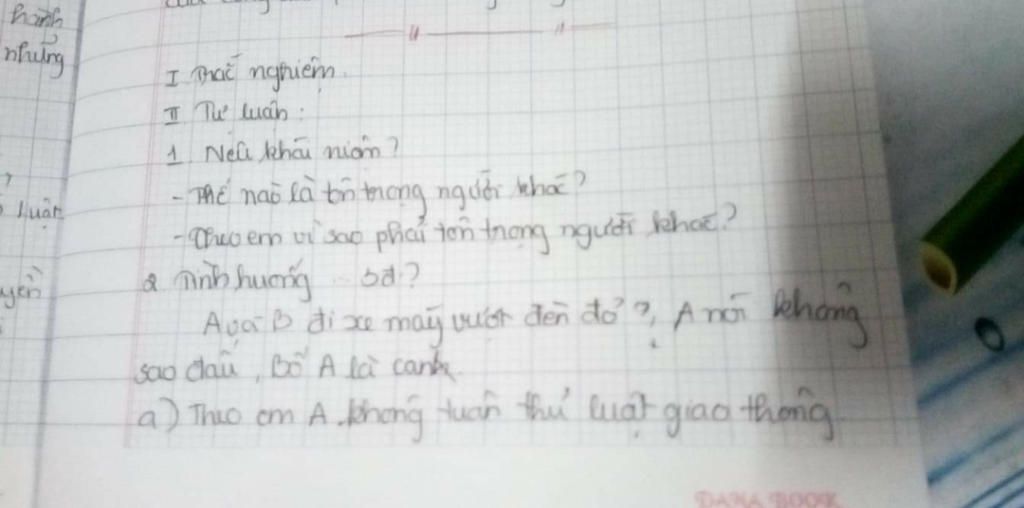 hành
những
luật
I Trắc nghiệm.
II Tự luận:
1 Nêu khái niệm?
- Thế nào là tôn trọng người khác?
- Theo em vì sao phải tôn trọng người khác?
2 Tình huống
A và B đi xe máy vượt đèn đỏ?, A nói không
sao đâu, Bố A là canh
a) Theo em A không tuân thủ luật giao thông
DANA BOOK